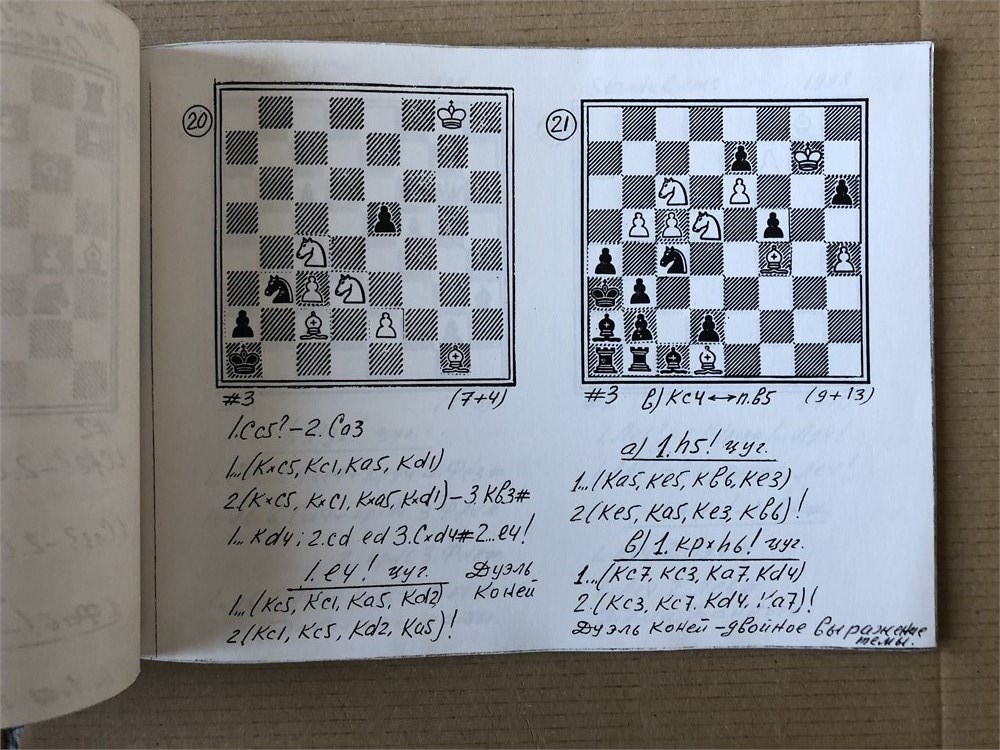 20
#3 (7+4)
1.Cc5?-2.Ca3
1...(Kxc5, Kc1, Ka5, Kd1)
2(Kxc5, Kxc1, Kxa5, Kxd1)-3.Кв3#
1... Kd4; 2.cd ed 3.Cxd4# 2...e4!
1.e4! цуг. Дуэль коней
1...(Kc5, Kc1, Ka5, Kd2)
2(Kc1, Kc5, Kd2, Ka5)!
21
#3 в) Kc4↔п.в5 (9+13)
а) 1.h5! цуг.
1...(Ka5, Ke5, Кв6, Ke3)
2(Ke5, Ka5, Ke3, Кв6)!
в) 1.Kpxh6! цуг.
1...(Kc7, Kc3, Ka7, Kd4)
2.(Kc3, Kc7, Kd4, Ka7)!
Дуэль коней-двойное выражение
темы.